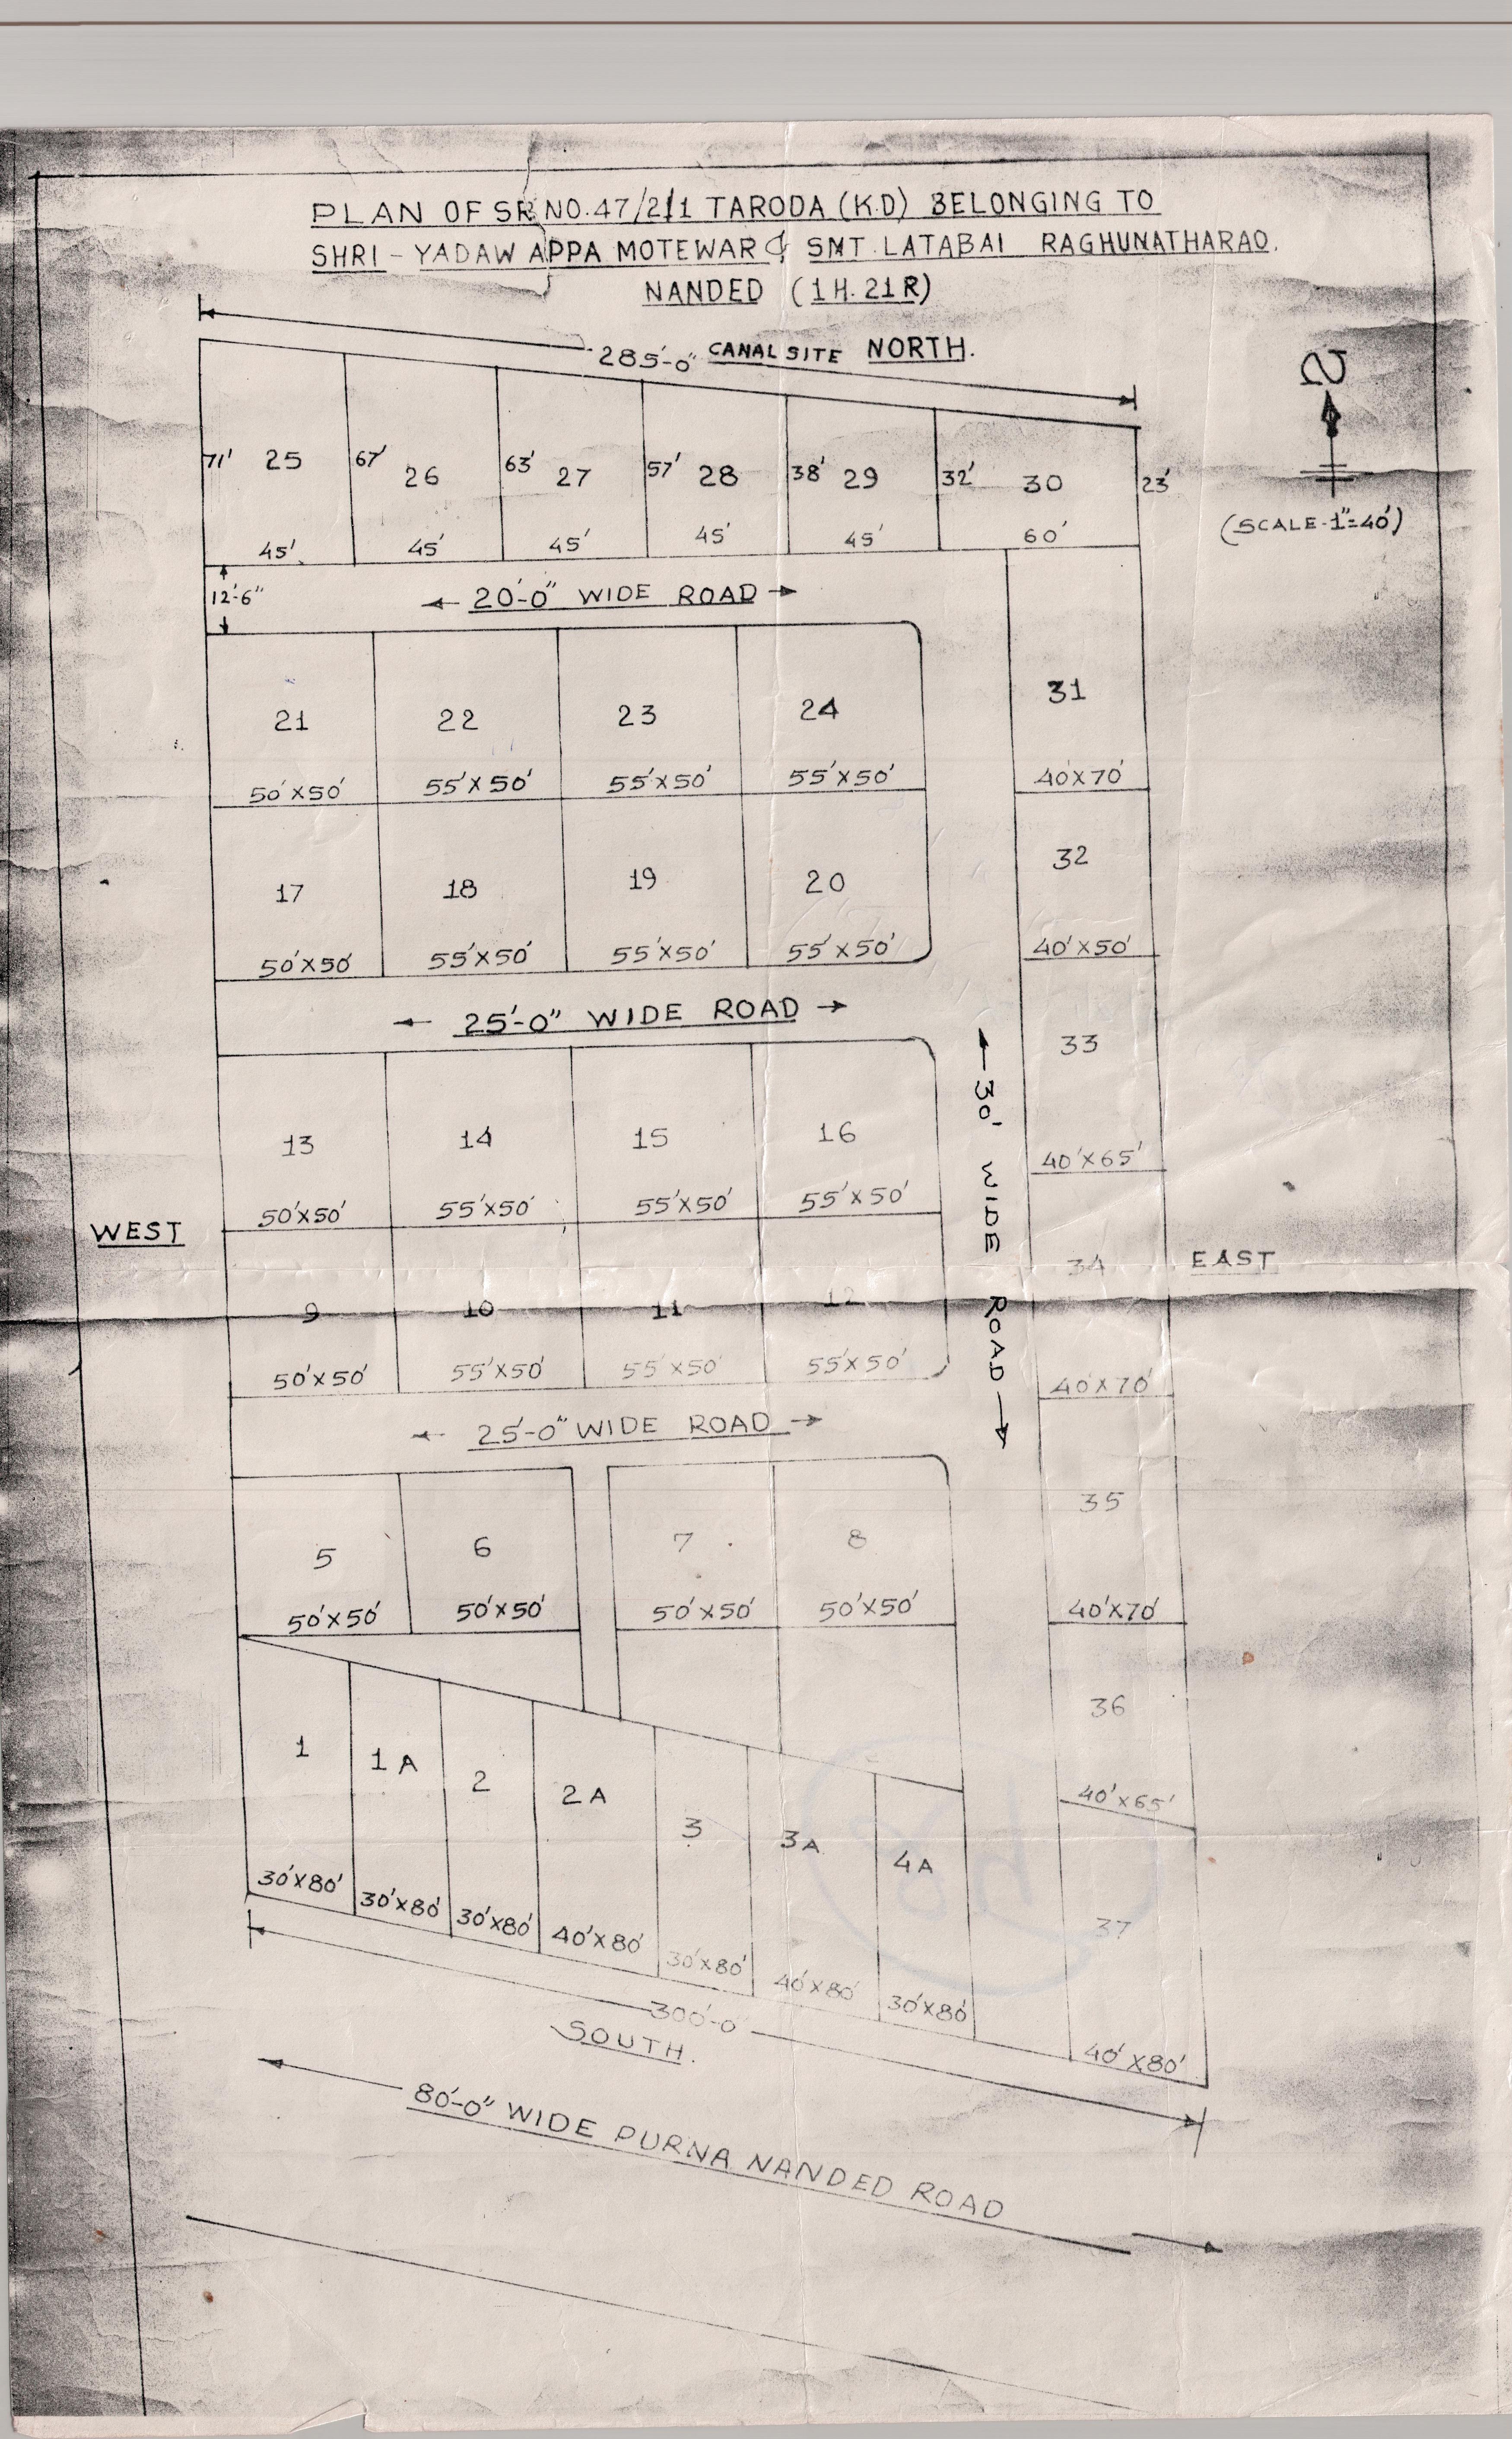 PLAN OF SR NO.47/2/1 TARODA (K.D) BELONGING TO
SHRI - YADAW APPA MOTEWAR & SMT. LATABAI RAGHUNATHARAO.
NANDED (1H.21R)
285'-0" CANAL SITE NORTH.
(SCALE-1"=40')
71' 25 67' 26 63' 27 57' 28 38' 29 32' 30 23'
45' 45' 45' 45' 45' 60'
12'-6"
20'-0" WIDE ROAD
21 22 23 24 31
50'X50' 55'X50' 55'X50' 55'X50' 40'X70'
17 18 19 20 32
50'X50' 55'X50' 55'X50' 55'X50' 40'X50'
25'-0" WIDE ROAD
30' WIDE ROAD
33
13 14 15 16
40'X65'
50'X50' 55'X50' 55'X50' 55'X50'
WEST
34 EAST
9 10 11 12
50'X50' 55'X50' 55'X50' 55'X50' 40'X70'
25'-0" WIDE ROAD
35
5 6 7 8
50'X50' 50'X50' 50'X50' 50'X50' 40'X70'
36
1 1A 2 2A 3 3A 4A
40'X65'
37
30'X80' 30'X80' 30'X80' 40'X80' 30'X80' 40'X80' 30'X80' 40'X80'
300'-0
SOUTH.
80'-0" WIDE PURNA NANDED ROAD